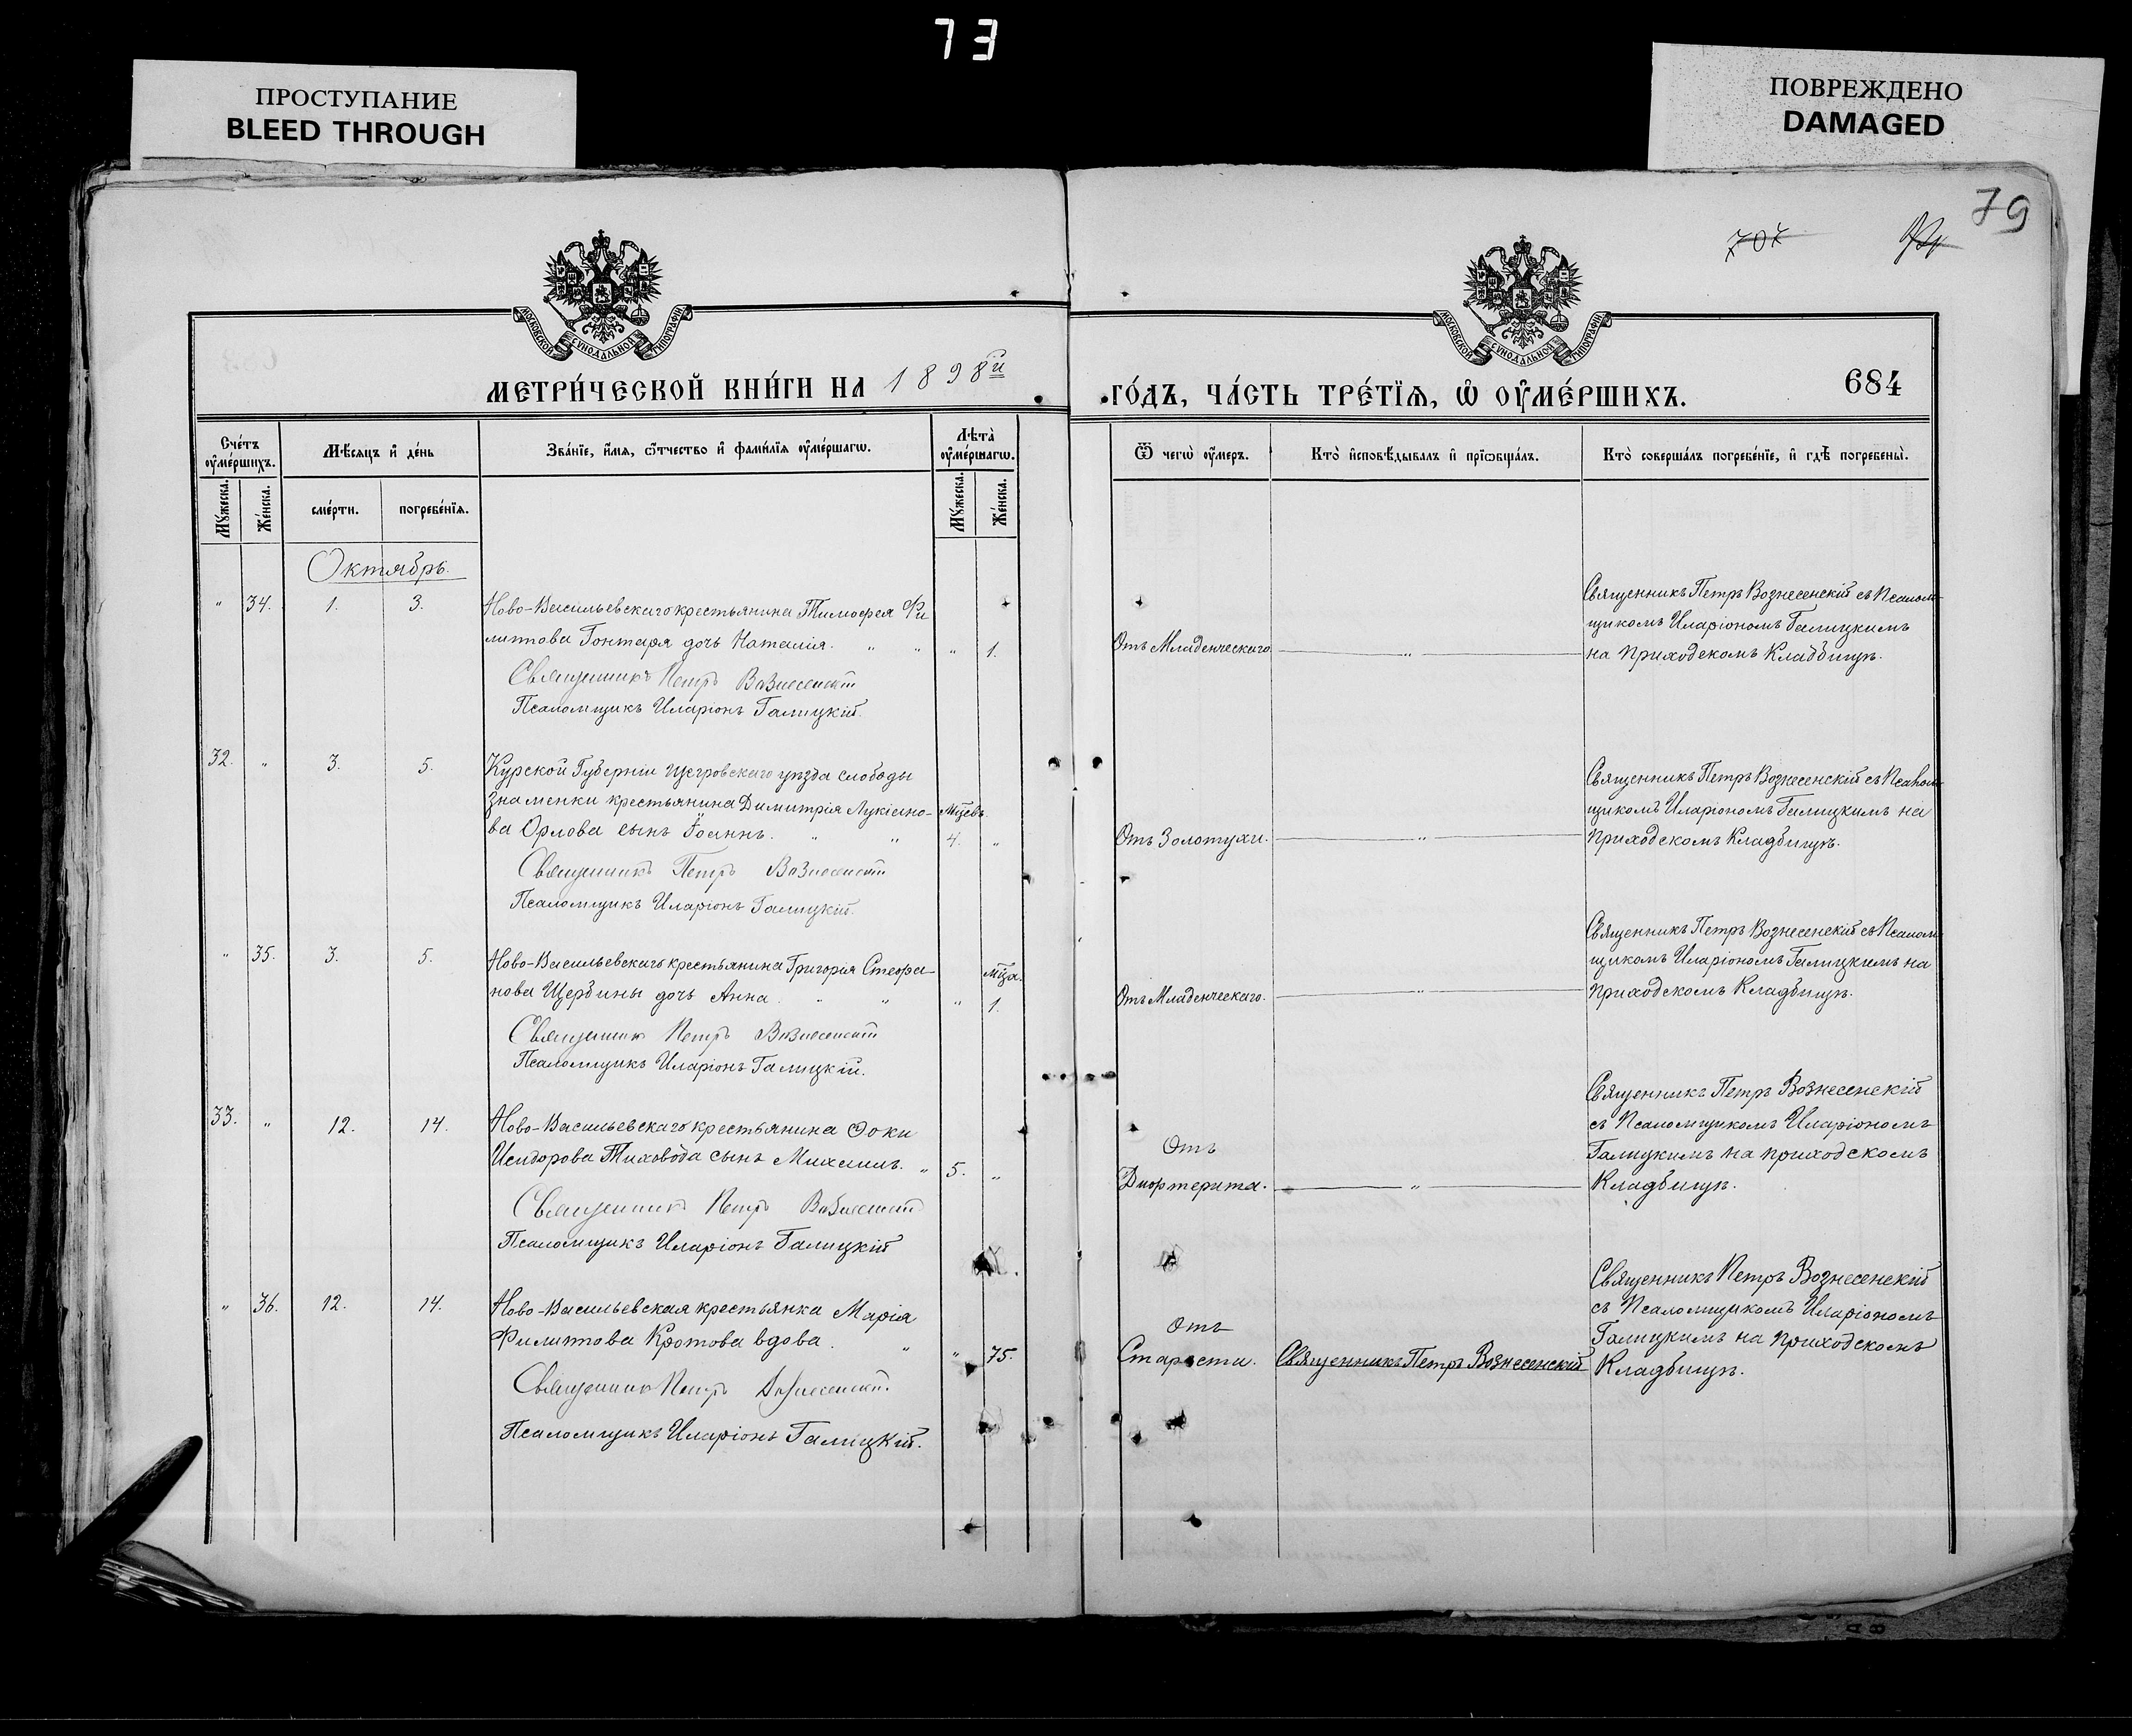 73
ПРОСТУПАНИЕ
BLEED THROUGH
ПОВРЕЖДЕНО
DAMAGED
79
707
МОСКОВСКОЙ СѴНОДАЛЬНОЙ ТИПОГРАФІИ
МОСКОВСКОЙ СѴНОДАЛЬНОЙ ТИПОГРАФІИ
МЕТРИ́ЧЕСКОЙ КНИ́ГИ НА 1898й
ГО́ДЪ, ЧА́СТЬ ТРЕ́ТЇѦ, Ѽ ОУ҆МЕ́РШИХЪ.
684
Сче́тъ оу҆ме́ршихъ.
Мѣ́сяцъ и҆ де́нь
Зва́нїе, и҆́мѧ, ѻ҆́тчество и҆ фами́лїѧ оу҆ме́ршагѡ.
Лѣ́та оу҆ме́ршагѡ.
Ѿ чегѡ̀ оу҆́меръ.
Кто̀ и҆сповѣ́дывалъ и҆ прїѡбща́лъ.
Кто̀ соверша́лъ погребе́нїе, и҆ гдѣ̀ погребены̀.
Мꙋ́жеска.
Же́нска.
сме́рти.
погребе́нїѧ.
Мꙋ́жеска.
Же́нска.
Октябрь.
" 34. 1. 3. Ново-Васильевскаго крестьянина Тимофея Фи
липпова Гонтаря дочь Наталія. " " " 1.
Священникъ Петръ Вознесенскій
Псаломщикъ Иларіонъ Галицкій.
Отъ Младенческаго. "
Священникъ Петръ Вознесенскій съ Псалом-
щикомъ Иларіономъ Галицкимъ
на приходскомъ Кладбищѣ.
32. " 3. 5. Курской Губерніи Щегровскаго уѣзда слободы
Знаменки крестьянина Димитрія Лукіано- Мцевъ.
ва Орлова сынъ Іоаннъ. " " 4. "
Священникъ Петръ Вознесенскій
Псаломщикъ Иларіонъ Галицкій.
Отъ Золотухи. "
Священникъ Петръ Вознесенскій съ Псалом-
щикомъ Иларіономъ Галицкимъ на
приходскомъ Кладбищѣ.
" 35. 3. 5. Ново-Васильевскаго крестьянина Григорія Стефа- Мца.
нова Щербины дочь Анна. " " " 1.
Священникъ Петръ Вознесенскій
Псаломщикъ Иларіонъ Галицкій.
Отъ Младенческаго. "
Священникъ Петръ Вознесенскій съ Псалом-
щикомъ Иларіономъ Галицкимъ на
приходскомъ Кладбищѣ.
33. " 12. 14. Ново-Васильевскаго крестьянина Фоки
Исидорова Тиховода сынъ Михаилъ. " 5. "
Священникъ Петръ Вознесенскій
Псаломщикъ Иларіонъ Галицкій
Отъ
Дифтерита. "
Священникъ Петръ Вознесенскій
съ Псаломщикомъ Иларіономъ
Галицкимъ на приходскомъ
Кладбищѣ.
" 36. 12. 14. Ново-Васильевская крестьянка Марія
Филиппова Кротова вдова. " " 75.
Священникъ Петръ Вознесенскій.
Псаломщикъ Иларіонъ Галицкій.
Отъ
Старости. Священникъ Петръ Вознесенскій
Священникъ Петръ Вознесенскій
съ Псаломщикомъ Иларіономъ
Галицкимъ на приходскомъ
Кладбищѣ.